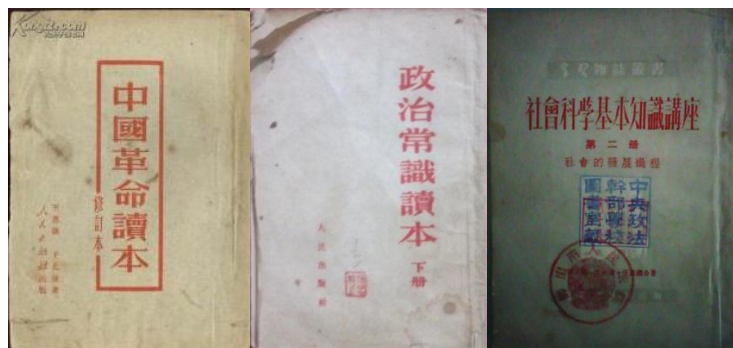 中國革命讀本
修訂本
人民出版社出版
政治常識讀本
下册
人民出版社
學習雜誌叢書
社會科學基本知識講座
第二册
社會的發展過程
中央政法
幹部學校
圖書室藏